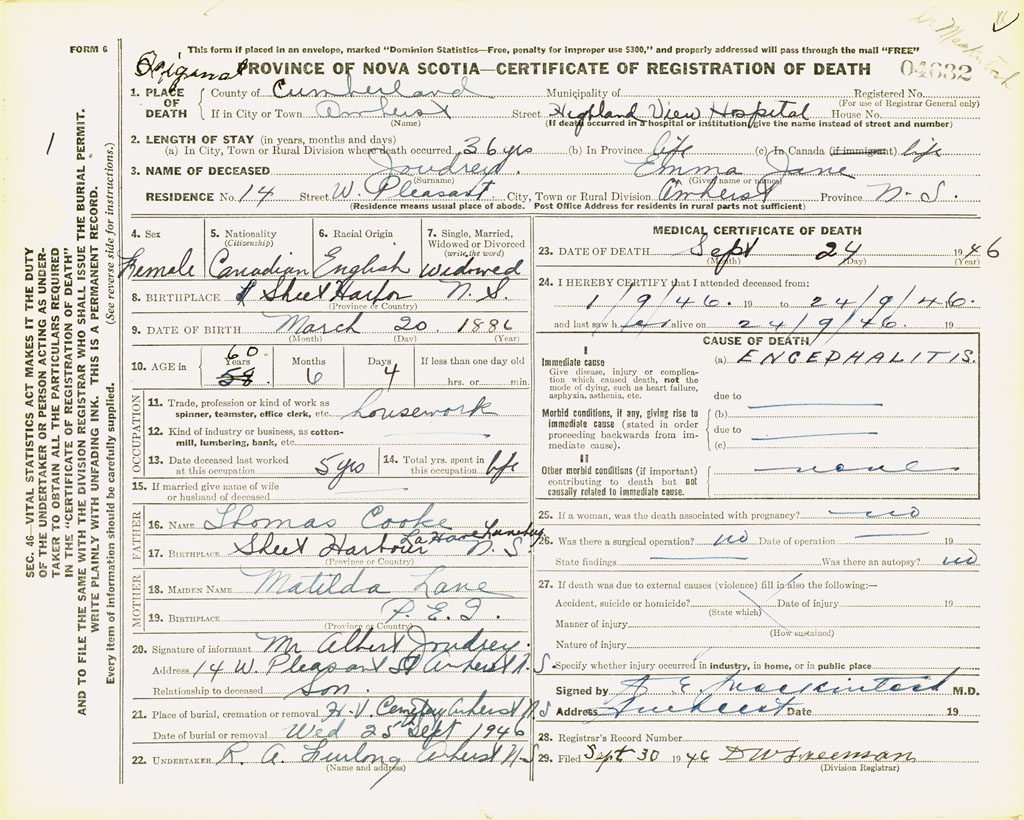 Dr Mackintosh
FORM 6
This form if placed in an envelope, marked "Dominion Statistics—Free, penalty for improper use $300," and properly addressed will pass through the mail "FREE"
Original PROVINCE OF NOVA SCOTIA—CERTIFICATE OF REGISTRATION OF DEATH 04632
1. PLACE OF DEATH County of Cumberland Municipality of Registered No.
(For use of Registrar General only)
If in City or Town Amherst Street Highland View Hospital House No.
(Name) (If death occurred in a hospital or institution, give the name instead of street and number)
2. LENGTH OF STAY (in years, months and days)
(a) In City, Town or Rural Division where death occurred 36 yrs (b) In Province life (c) In Canada (if immigrant) life
3. NAME OF DECEASED Joudrey Emma Jane
(Surname) (Given name or names)
RESIDENCE No. 14 Street W. Pleasant City, Town or Rural Division Amherst Province N-S.
(Residence means usual place of abode. Post Office Address for residents in rural parts not sufficient)
4. Sex 5. Nationality (Citizenship) 6. Racial Origin 7. Single, Married, Widowed or Divorced (write the word)
Female Canadian English Widowed
8. BIRTHPLACE Sheet Harbor N.S.
(Province or Country)
9. DATE OF BIRTH March 20. 1886
(Month) (Day) (Year)
10. AGE in Years Months Days If less than one day old
60 58 6 4 hrs. or min.
OCCUPATION
11. Trade, profession or kind of work as spinner, teamster, office clerk, etc. housework
12. Kind of industry or business, as cotton-mill, lumbering, bank, etc.
13. Date deceased last worked at this occupation 5 yrs 14. Total yrs. spent in this occupation life
15. If married give name of wife or husband of deceased
FATHER
16. NAME Thomas Cooke
17. BIRTHPLACE Sheet Harbour LaHave N.S.
(Province or Country)
MOTHER
18. MAIDEN NAME Matilda Lane
19. BIRTHPLACE P.E.I.
(Province or Country)
20. Signature of informant Mr Albert Joudrey.
Address 14 W. Pleasant St Amherst N.S
Relationship to deceased Son.
21. Place of burial, cremation or removal H.V. Cemetery Amherst N.S
Date of burial or removal Wed 25th Sept 1946
22. UNDERTAKER R. A. Furlong Amherst N-S
(Name and address)
MEDICAL CERTIFICATE OF DEATH
23. DATE OF DEATH Sept 24 1946
(Month) (Day) (Year)
24. I HEREBY CERTIFY that I attended deceased from:
1/9/46. 19 to 24/9/46. 19
and last saw h er alive on 24/9/46. 19
CAUSE OF DEATH
I
Immediate cause (a) ENCEPHALITIS.
Give disease, injury or complication which caused death, not the mode of dying, such as heart failure, asphyxia, asthenia, etc.
due to
Morbid conditions, if any, giving rise to immediate cause (stated in order proceeding backwards from immediate cause). (b)
due to
(c)
II
Other morbid conditions (if important) contributing to death but not causally related to immediate cause. none
25. If a woman, was the death associated with pregnancy? no
26. Was there a surgical operation? no Date of operation 19
State findings Was there an autopsy? no
27. If death was due to external causes (violence) fill in also the following:—
Accident, suicide or homicide? Date of injury 19
(State which)
Manner of injury
(How sustained)
Nature of injury
Specify whether injury occurred in industry, in home, or in public place
Signed by A E Mackintosh M.D.
Address Amherst Date 19
28. Registrar's Record Number
29. Filed Sept 30 1946 D W Freeman
(Division Registrar)
SEC. 46—VITAL STATISTICS ACT MAKES IT THE DUTY
OF THE UNDERTAKER OR PERSON ACTING AS UNDER-
TAKER TO OBTAIN ALL THE PARTICULARS REQUIRED
IN THE "CERTIFICATE OF REGISTRATION OF DEATH"
AND TO FILE THE SAME WITH THE DIVISION REGISTRAR WHO SHALL ISSUE THE BURIAL PERMIT.
WRITE PLAINLY WITH UNFADING INK. THIS IS A PERMANENT RECORD.
Every item of information should be carefully supplied. (See reverse side for instructions.)